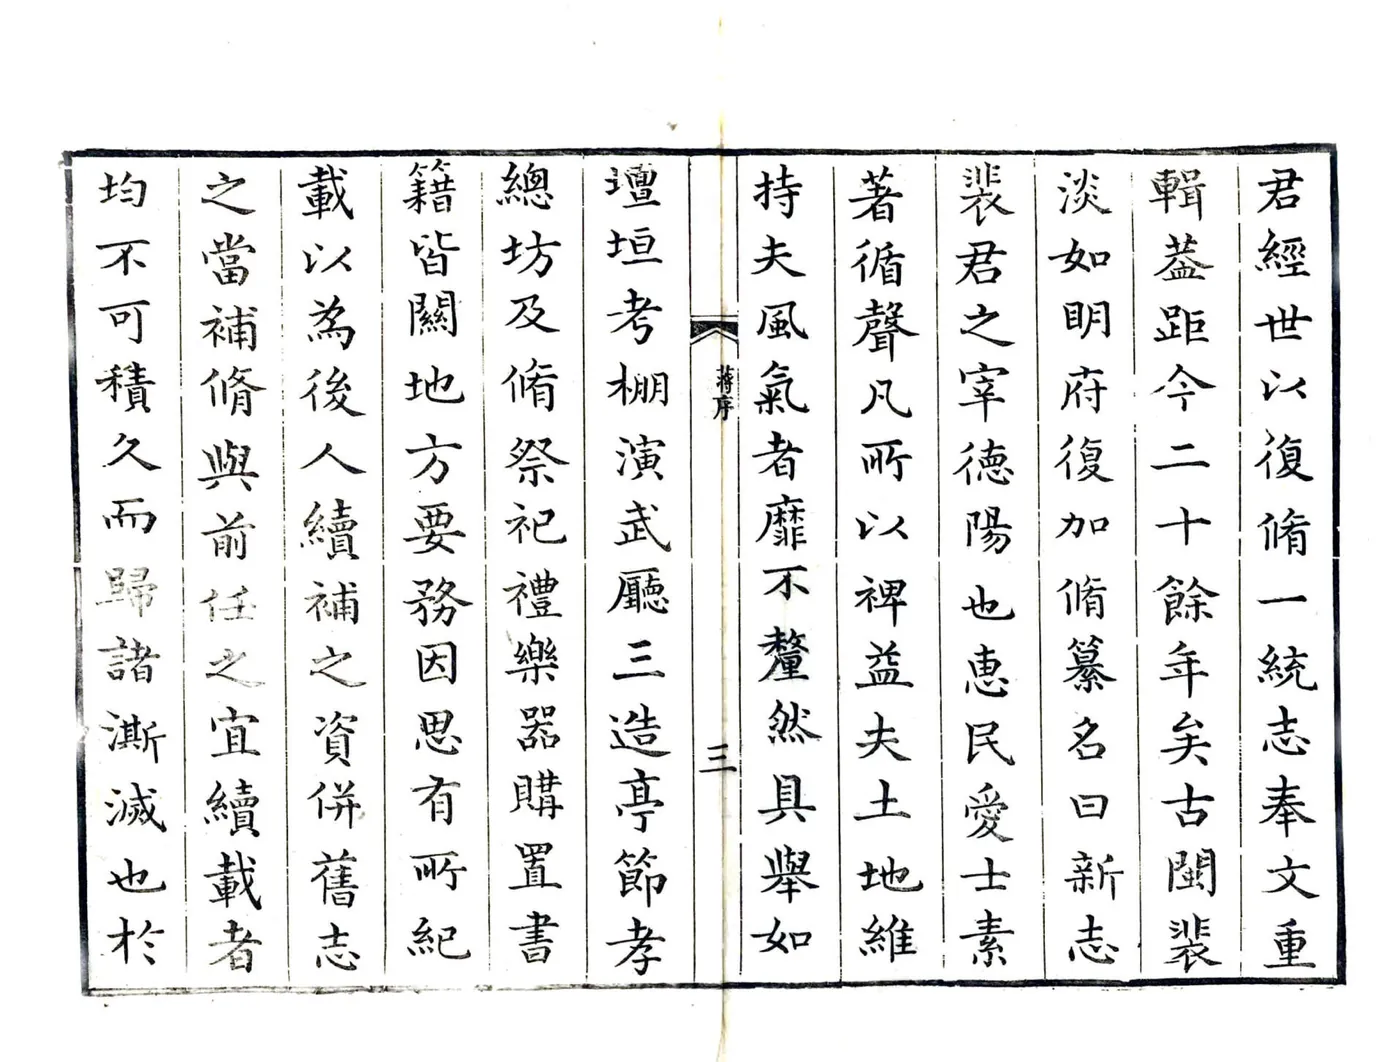 君經世以復脩一統志奉文重
輯蓋距今二十餘年矣古閩裴
淡如明府復加脩纂名曰新志
裴君之宰德陽也恵民愛士素
著循聲凡所以裨益夫土地維
持夫風氣者靡不釐然具舉如
蔣序
三
壇垣考棚演武廳三造亭節孝
總坊及脩祭祀禮樂器購置書
籍皆關地方要務因思有所紀
載以為後人續補之資併舊志
之當補脩與前任之宜續載者
均不可積久而歸諸澌滅也於